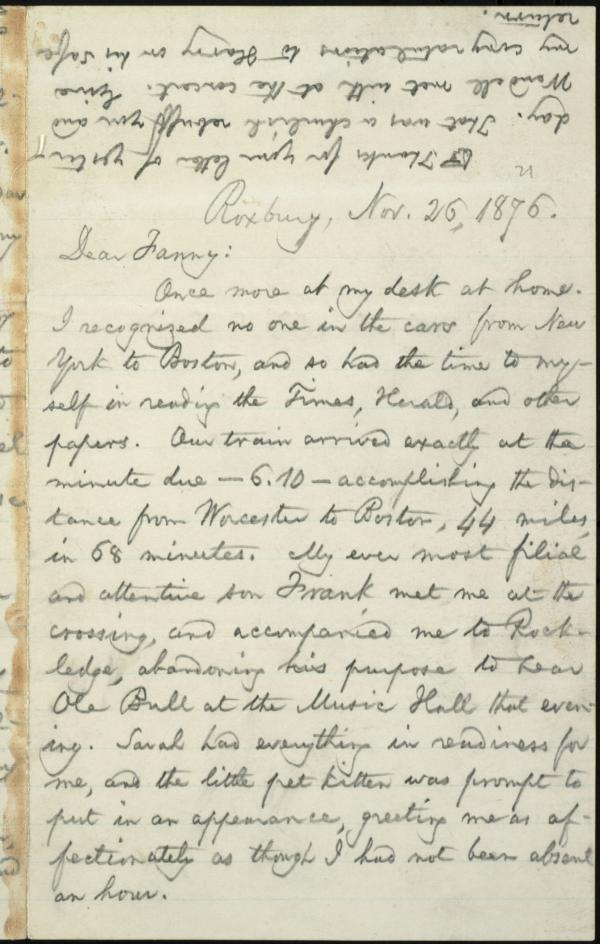 Thanks for your letter of yester-
day. That was a churlish rebuff you and
Wendell met with at the concert. Give
my congratulations to Harry on his safe
return.
Roxbury, Nov. 26, 1876.
Dear Fanny:
Once more at my desk at home.
I recognized no one in the cars from New
York to Boston, and so had the time to my-
self in reading the Times, Herald, and other
papers. Our train arrived exactly at the
minute due — 6.10 — accomplishing the dis-
tance from Worcester to Boston, 44 miles,
in 68 minutes. My ever most filial
and attentive son Frank met me at the
crossing, and accompanied me to Rock-
ledge, abandoning his purpose to hear
Ole Bull at the Music Hall that even-
ing. Sarah had everything in readiness for
me, and the little pet kitten was prompt to
put in an appearance, greeting me as af-
fectionately as though I had not been absent
an hour.